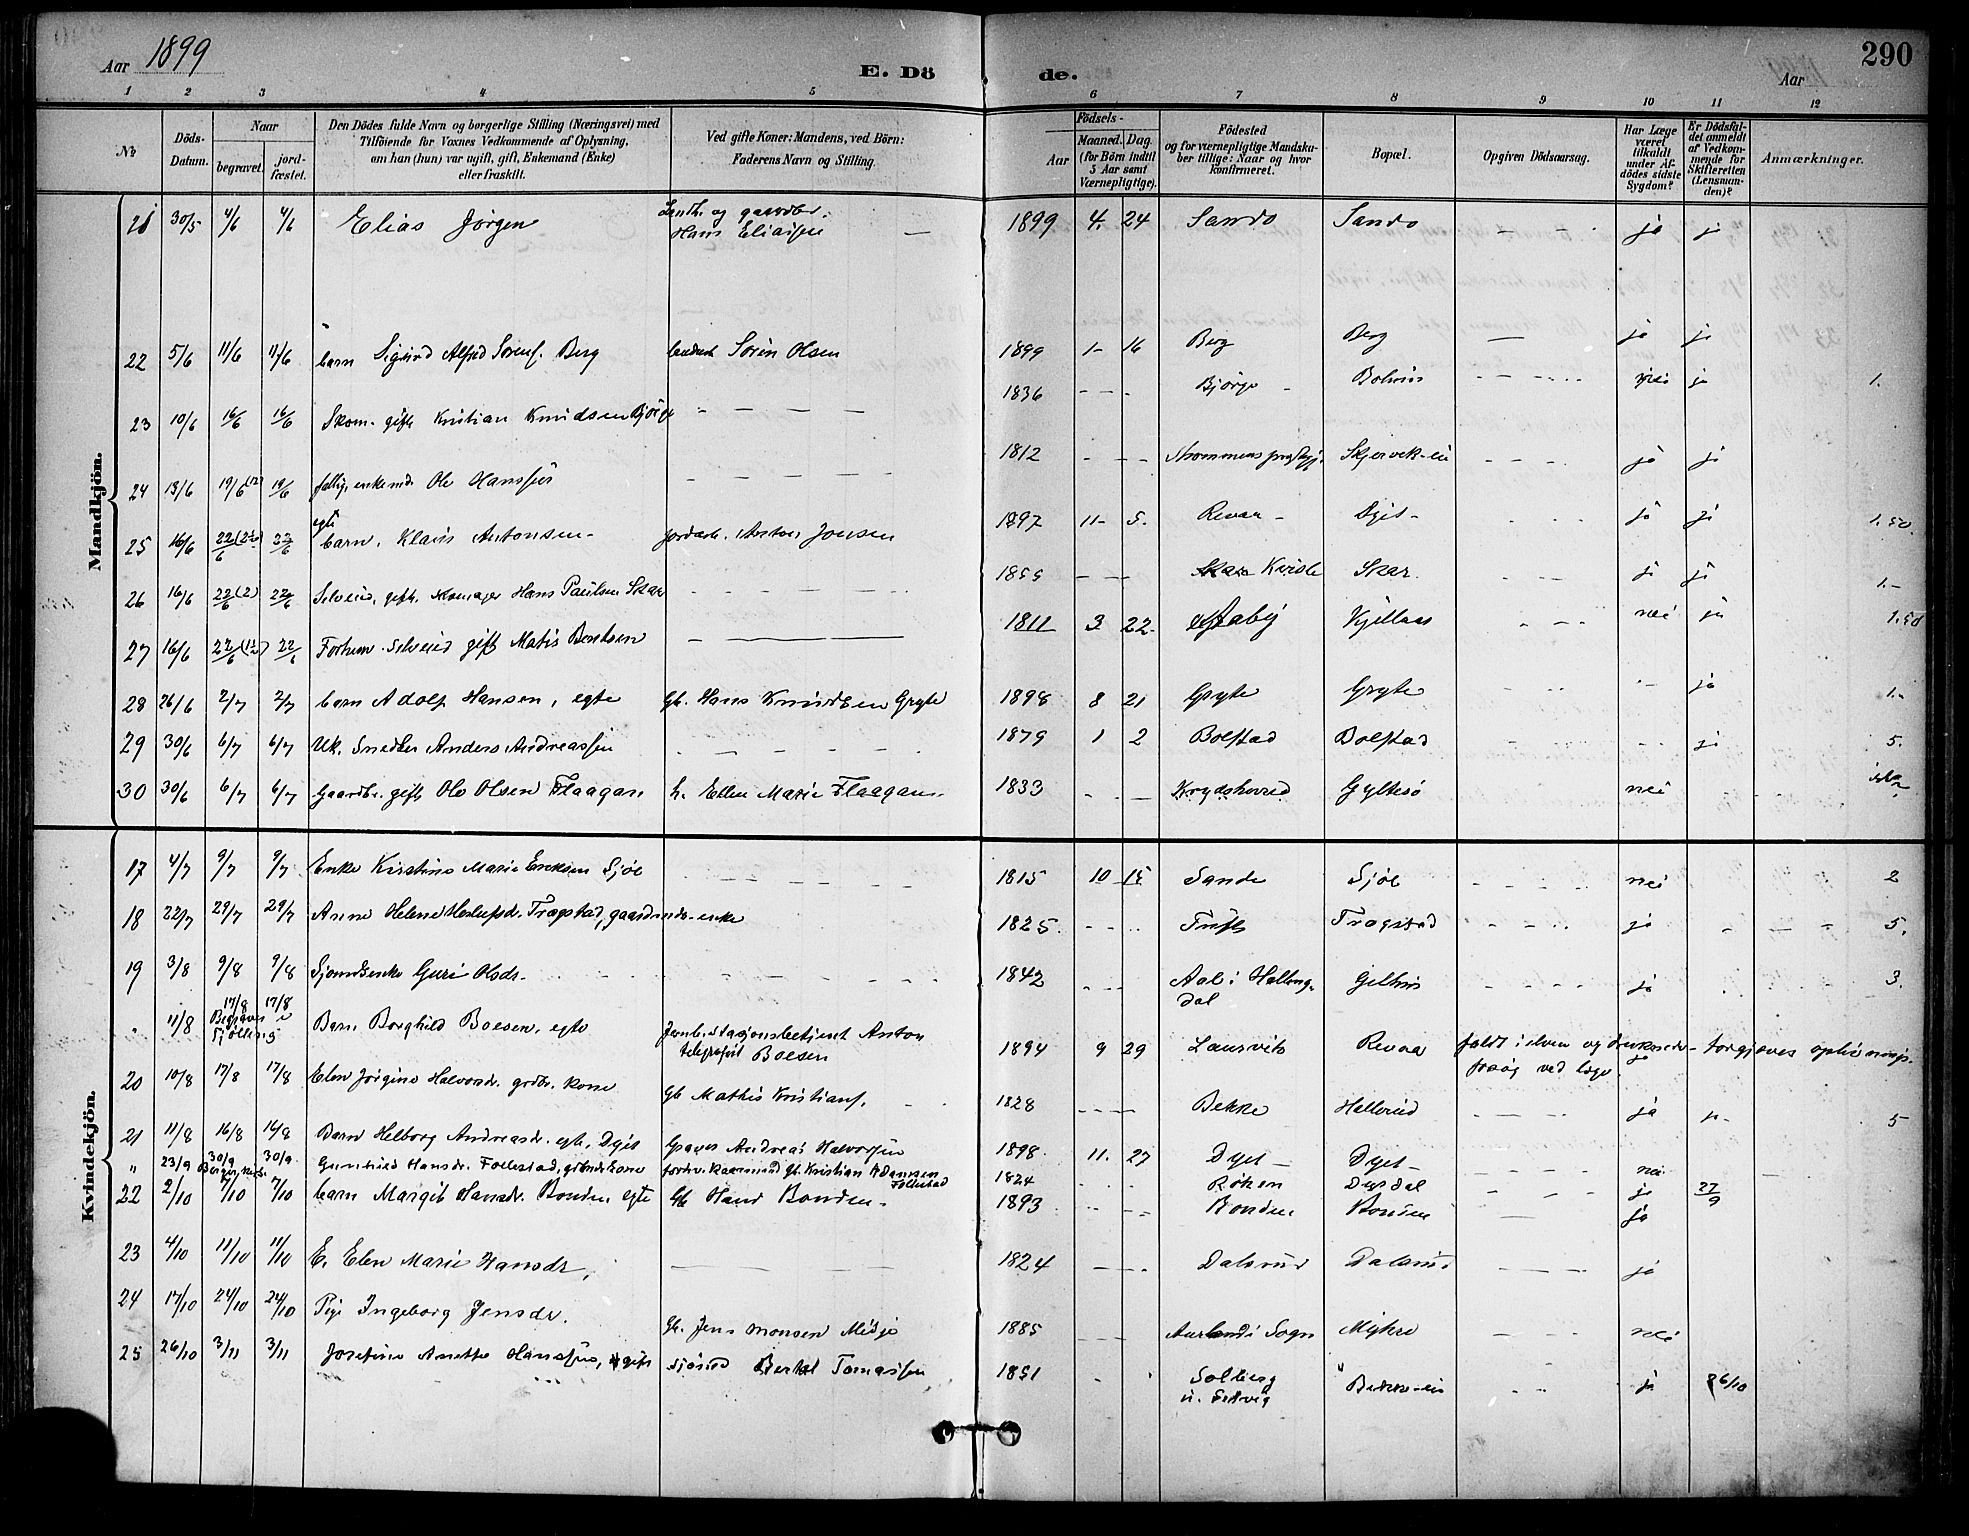 Aar 1899
E. Dö
de.
Aar
290
1 2 3 4 5 6 7 8 9 10 11 12
No
Döds-Datum.
Naar
begravet.
jord-fæstet.
Den Dödes fulde Navn og borgerlige Stilling (Næringsvei) med
Tilföiende for Voxnes Vedkommende af Oplysning,
om han (hun) var ugift, gift, Enkemand (Enke)
eller fraskilt.
Ved gifte Koner: Mandens, ved Börn:
Faderens Navn og Stilling.
Födsels-
Aar
Maaned. Dag
(for Börn indtil
5 Aar samt
Værnepligtige).
Födested
og for værnepligtige Mandskaber tillige: Naar og hvor
konfirmeret.
Bopæl.
Opgiven Dödsaarsag.
Har Læge
været
tilkaldt
under Af-
dödes sidste
Sygdom?
Er Dödsfal-
det anmeldt
af Vedkom-
mende for
Skifteretten
(Lensman-
den)?
Anmærkninger.
Mandkjön.
21 30/5 4/6 4/6 Elias Jörgen og gaardbr. Hans Eliassen — 1899 4. 24 Sando Sando - - ja ja
22 5/6 11/6 11/6 barn Sigurd Alfred Sörens. Berg Sörin Olsen 1899 1- 16 Berg Berg — ja ja
23 10/6 16/6 16/6 Skom. gift Kristian Knudsen Bjørge - — — — 1836 - - - Bjørge - nei ja 1.
24 13/6 19/6 (12) 19/6 enkemd. Ole Hanssen - — — — 1812 - - - ja ja
25 16/6 22/6 22/6 egte barn, Klaus Antonsen - Jordarb. Anton Jonsen 1897 11- 5. Revaa - ja ja 1.50.
26 16/6 22/6 (2) 22/6 Selveier, gift, Hans Paulsen Skar - - - - 1855 — — Kvisle Skar. ja ja 1.-
27 16/6 22/6 22/6 Selveier gift Matis Bentsen - — — 1811 3 22 Kjellaas nei ja 1.50
28 26/6 2/7 2/7 barn Adolf Hansen, egte Gb. Hans Knudsen Gryte 1898 8 21 Gryte Gryte ja 1.-
29 30/6 6/7 6/7 Uk. Snedker Anders Andreassen - - - - 1879 1 2 Bolstad Bolstad ja 5.
30 30/6 6/7 6/7 Gaardbr. gift Ole Olsen Flaagan h. Ellen Marie Flaagan 1833 - - Krydsherred Gyltesö nei
Kvindekjön.
17 4/7 9/7 9/7 Enke Kirstine Marie Eriksen Sjöl - - - - 1815 10 15 Sande Sjöl nei 2
18 22/7 29/7 29/7 Anne Helene Trogstad, gaardmds-enke 1825. - - Tufte Trogstad ja 5.
19 3/8 9/8 9/8 Sjömdsenke Guri Olsdr. - - - - 1842 - - - Aal i Hallingdal Gilhus ja 3.
" 11/8 17/8 17/8 Begraves i Tjölling Barn Borghild Boesen, egte Jernb. stasjonsbetjent Anton telegrafist Boesen 1894 9 29 Laurvik Revaa faldt i elven og druknede - forgjæves oplivningsforsøg ved læge. ja
20 10/8 17/8 17/8 Elen Jörgine Halvorsdr. grdbr. kone Gb Mathis Kristians. 1828 - - - Bekke Hallerud ja 5
21 11/8 16/8 16/8 Barn Helborg Andreasdr. egte, Dyet Andreas Halvorsen 1898. 11. 27 Dyet - Dyet - nei
" 23/9 30/9 30/9 Gunhild Hansdr. Follestad, gbrds kone Gb. Kristian Adamsen Follestad 1824 Røken ja 27/9
22 2/10 7/10 7/10 barn Margit Hansdr. Bonden egte Gb Hans Bonden - 1893 - - Bonden Bonden ja
23 4/10 11/10 11/10 E. Elen Marie Hansdr. — 1824 - - - Dalsrud Dalsrud ja
24 17/10 24/10 24/10 Pige Ingeborg Jensdr. Gb. Jens Monsen Midje 1885 - - - Aurland i Sogn nei
25 26/10 3/11 3/11 Josefine Anette, gift Sjömd Bertel Tomassen 1851 - Solberg ja 26/10